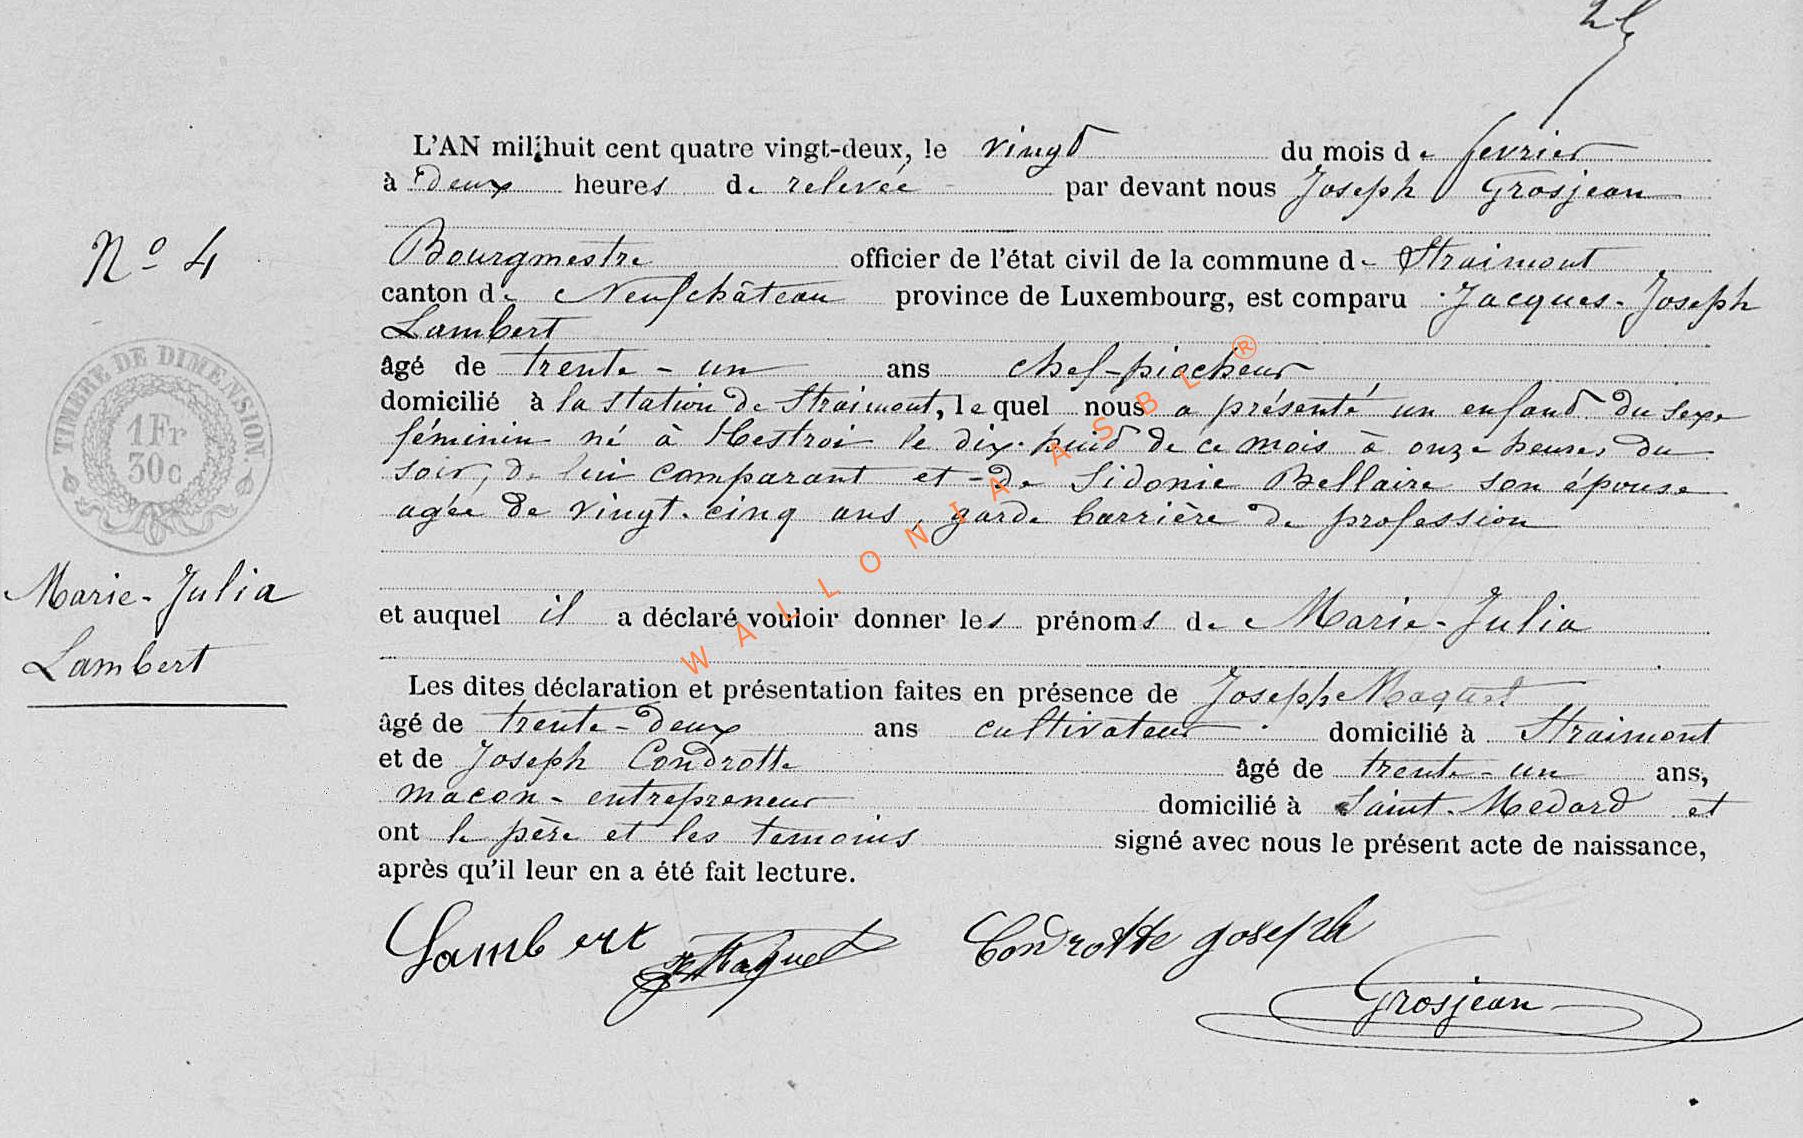 L'AN mil huit cent quatre vingt-deux, le vingt du mois de fevrier
à deux heures de relevée par devant nous Joseph Grosjean
Bourgmestre officier de l'état civil de la commune de Straimont
N° 4
canton de Neufchâteau province de Luxembourg, est comparu Jacques-Joseph
Lambert
âgé de trente-un ans chef-piocheur
domicilié à la station de Straimont, lequel nous a présenté un enfant du sexe
féminin né à Hestroi le dix-huit de ce mois à onze heures du
soir, de lui comparant et de Sidonie Bellaire son épouse
agée de vingt-cinq ans, garde barrière de profession
TIMBRE DE DIMENSION
1 Fr
30c
Marie-Julia
Lambert
et auquel il a déclaré vouloir donner les prénoms de Marie-Julia
Les dites déclaration et présentation faites en présence de Joseph Maquet
âgé de trente-deux ans cultivateur domicilié à Straimont
et de Joseph Condrotte âgé de trente-un ans,
macon-entrepreneur domicilié à Saint-Medard et
ont le père et les temoins signé avec nous le présent acte de naissance,
après qu'il leur en a été fait lecture.
Lambert Jh Maquet Condrotte Joseph
Grosjean
WALLONIA ASBL ®